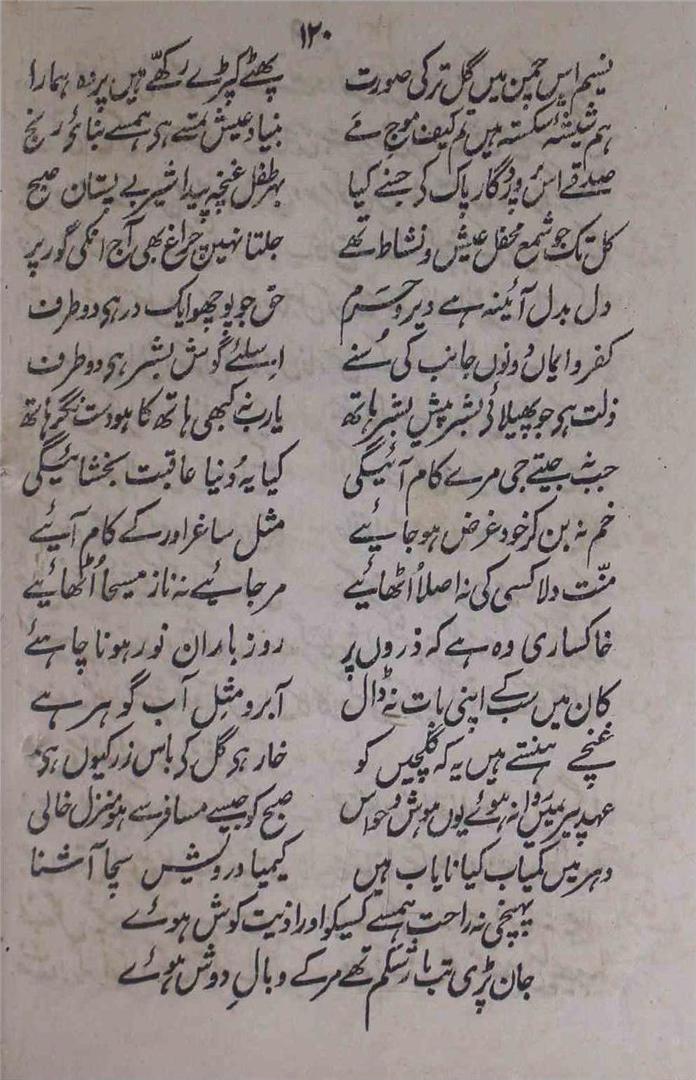 ۱۲۰
نسیم اس چمن میں گل تر کی صورت پھٹے کپڑے رکھے ہیں پردہ ہمارا
ہم شیشۂ شکستہ ہیں تم کیف موج مے بنیاد عیش تمسے ہی ہمسے بنائے رنج
صدقے اس پروردگار پاک کی جسنے کیا بہر طفل غنچہ پیدا شیر بے پستان صبح
کل تک جو شمع محفل عیش و نشاط تھے جلتا نہین چراغ بھی آج انکی گور پر
دل بدل آئینہ ہے دیر و حرم حق جو پوچھو ایک در ہی دو طرف
کفر و ایمان دونوں جانب کی سنے اسلئے گوش بشر ہی دو طرف
ذلت ہی جو پھیلائے بشر پیش بشر ہاتھ یارب نہ کبھی ہاتھ کا ہو دست نگر ہاتھ
جب نہ جیتے جی مرے کام آئیگی کیا یہ دُنیا عاقبت بخشائیگی
خم نہ بن کر خود غرض ہو جایئے مثل ساغر اور کے کام آیئے
منّت دلا کسی کی نہ اصلا اُٹھایئے مر جایئے نہ ناز مسیحا اُٹھایئے
خاکساری وہ ہے کہ ذروں پر روز باران نور ہونا چاہئے
کان میں سب کے اپنی بات نہ ڈال آبرو مثل آب گوہر ہے
غنچے ہنستے ہیں یہ کہ گلچیں کو خار ہی گل کی باس زر کیوں ہی
عہد پیر میں روانہ ہوئے یوں ہوش و حواس صبح کو جیسے مسافر سے ہو منزل خالی
دہر میں کمیاب کیا نایاب ہیں کیمیا درویش سچا آشنا
پہنچی نہ راحت ہمسے کسیکو اور اذیت کوش ہوئے
جان پڑی تب بار شکم تھے مر کے وبالِ دوش ہوئے